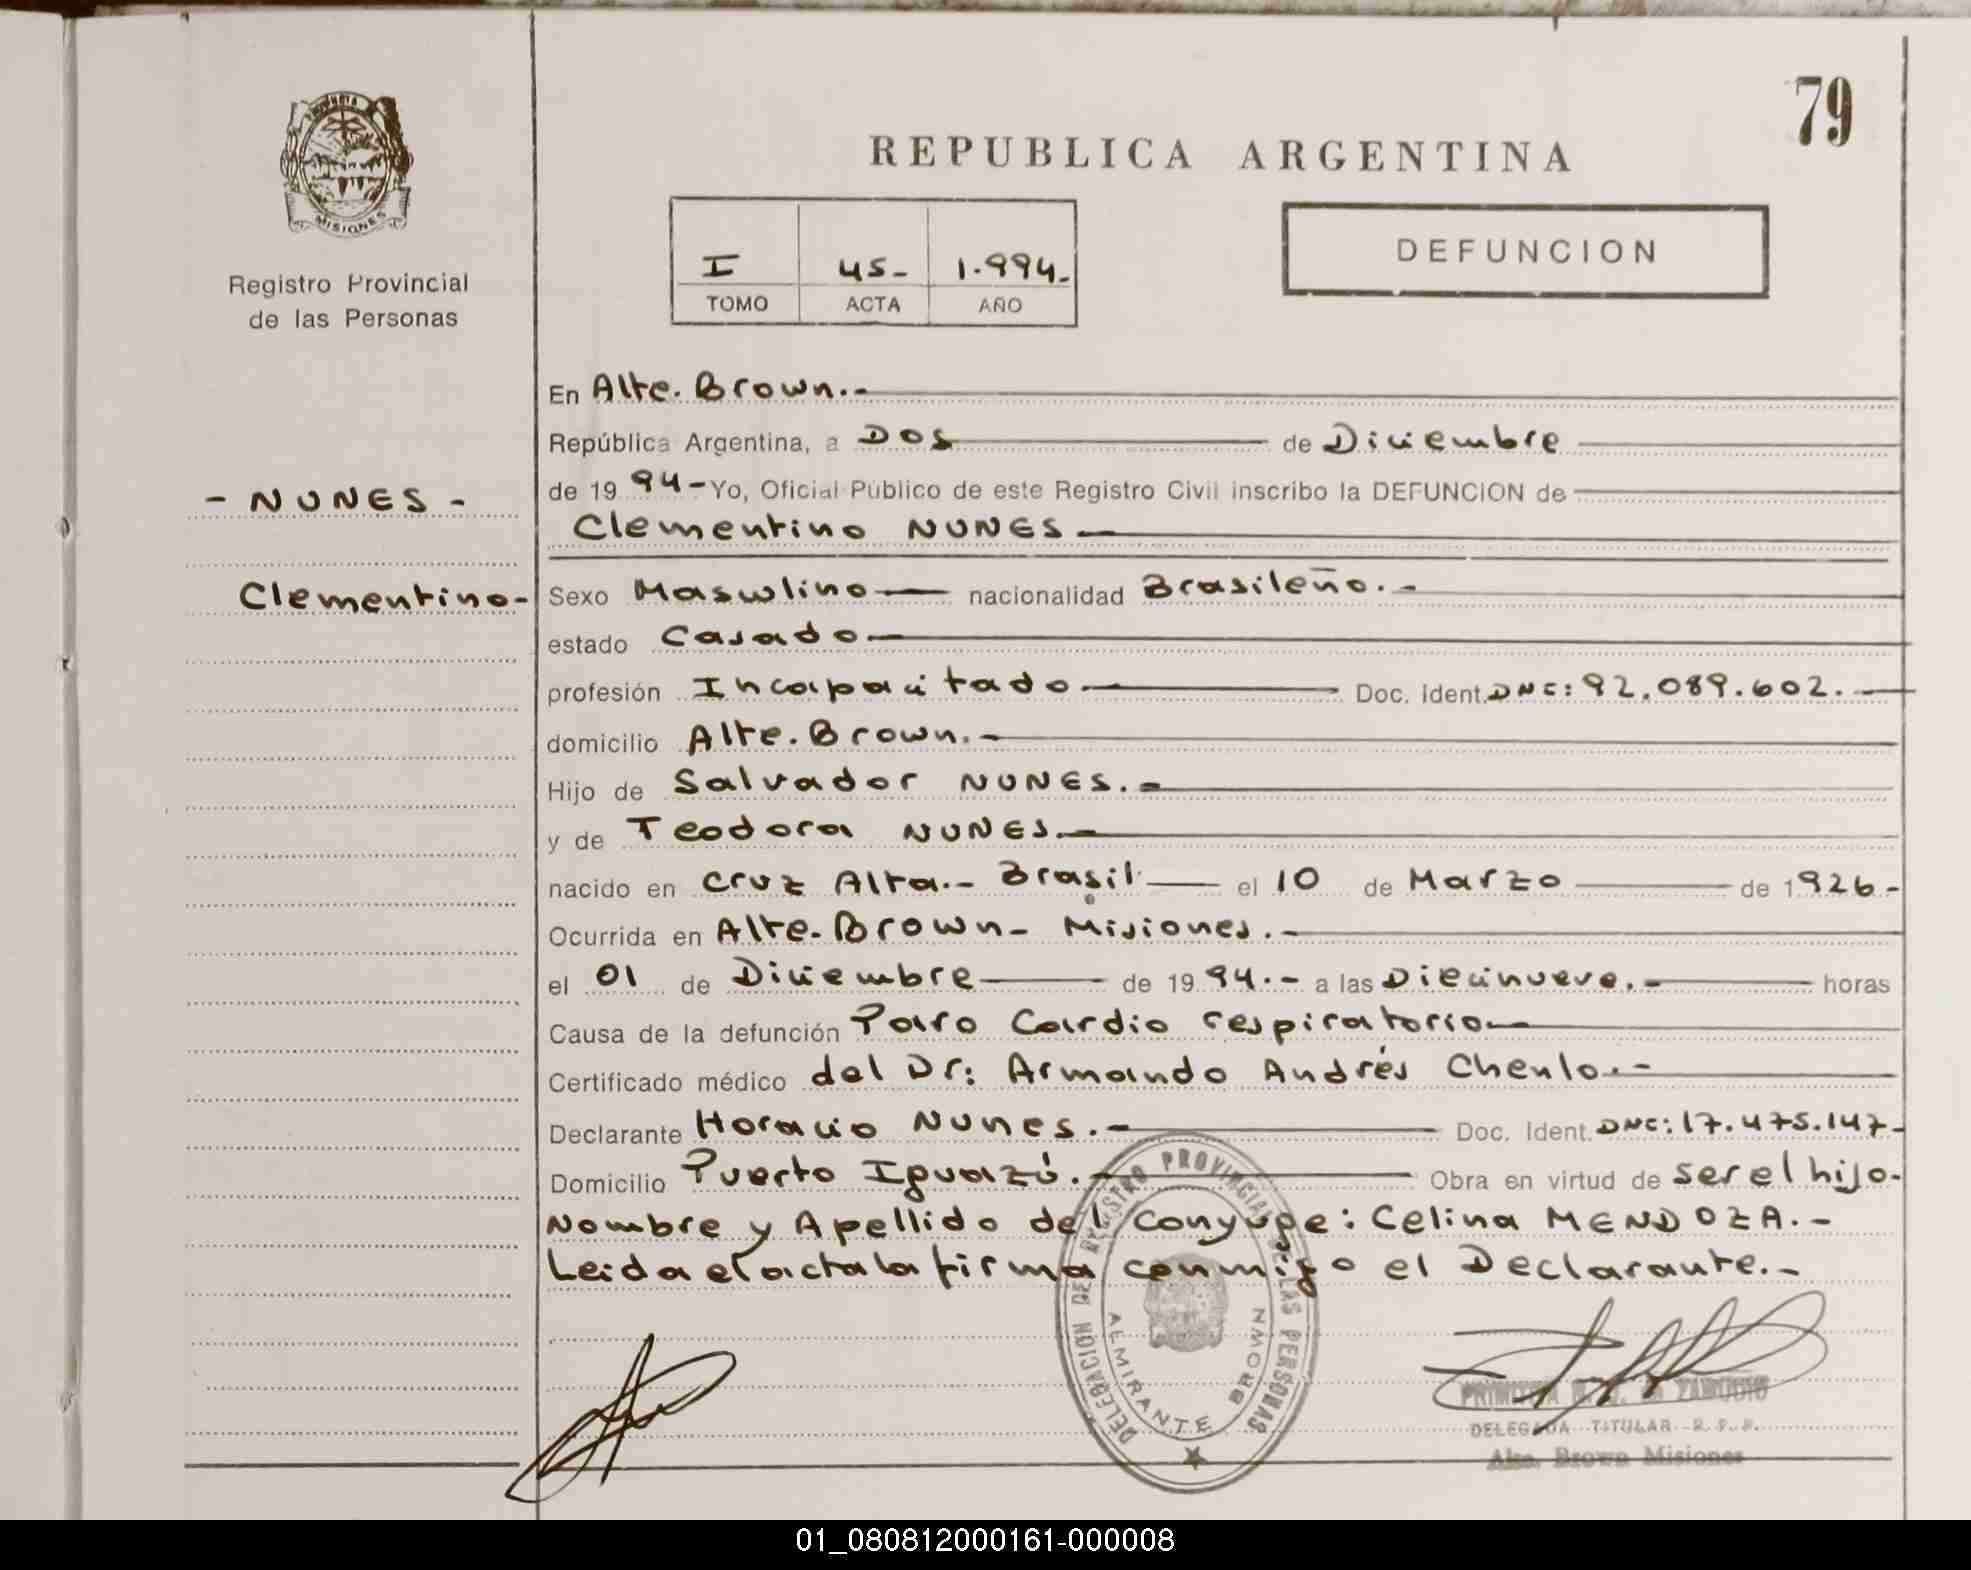 79
PROVINCIA
MISIONES
REPUBLICA ARGENTINA
DEFUNCION
I 45- 1.994-
TOMO ACTA AÑO
Registro Provincial
de las Personas
- NUNES -
Clementino-
En Alte. Brown.-
República Argentina, a DOS de Diciembre
de 19 94- Yo, Oficial Público de este Registro Civil inscribo la DEFUNCION de
Clementino NUNES
Sexo Masculino nacionalidad Brasileño.-
estado Casado
profesión Incapacitado Doc. Ident. DNE: 92.089.602.
domicilio Alte. Brown.-
Hijo de Salvador NUNES.-
y de Teodora NUNES.-
nacido en Cruz Alta.- Brasil el 10 de Marzo de 1926-
Ocurrida en Alte. Brown- Misiones.-
el 01 de Diciembre de 19 94.- a las Diecinueve.- horas
Causa de la defunción Paro Cardio respiratorio
Certificado médico del Dr: Armando Andrés Chenlo.-
Declarante Horacio Nunes.- Doc. Ident. DNE: 17.475.147-
Domicilio Puerto Iguazú.- Obra en virtud de ser el hijo.
Nombre y Apellido del Conyuge: Celina MENDOZA.-
Leida el acta la firma conmigo el Declarante.-
DELEGACION DEL REGISTRO PROVINCIAL DE LAS PERSONAS
ALMIRANTE BROWN
DELEGADA TITULAR R.P.P.
Alte. Brown Misiones
01_080812000161-000008